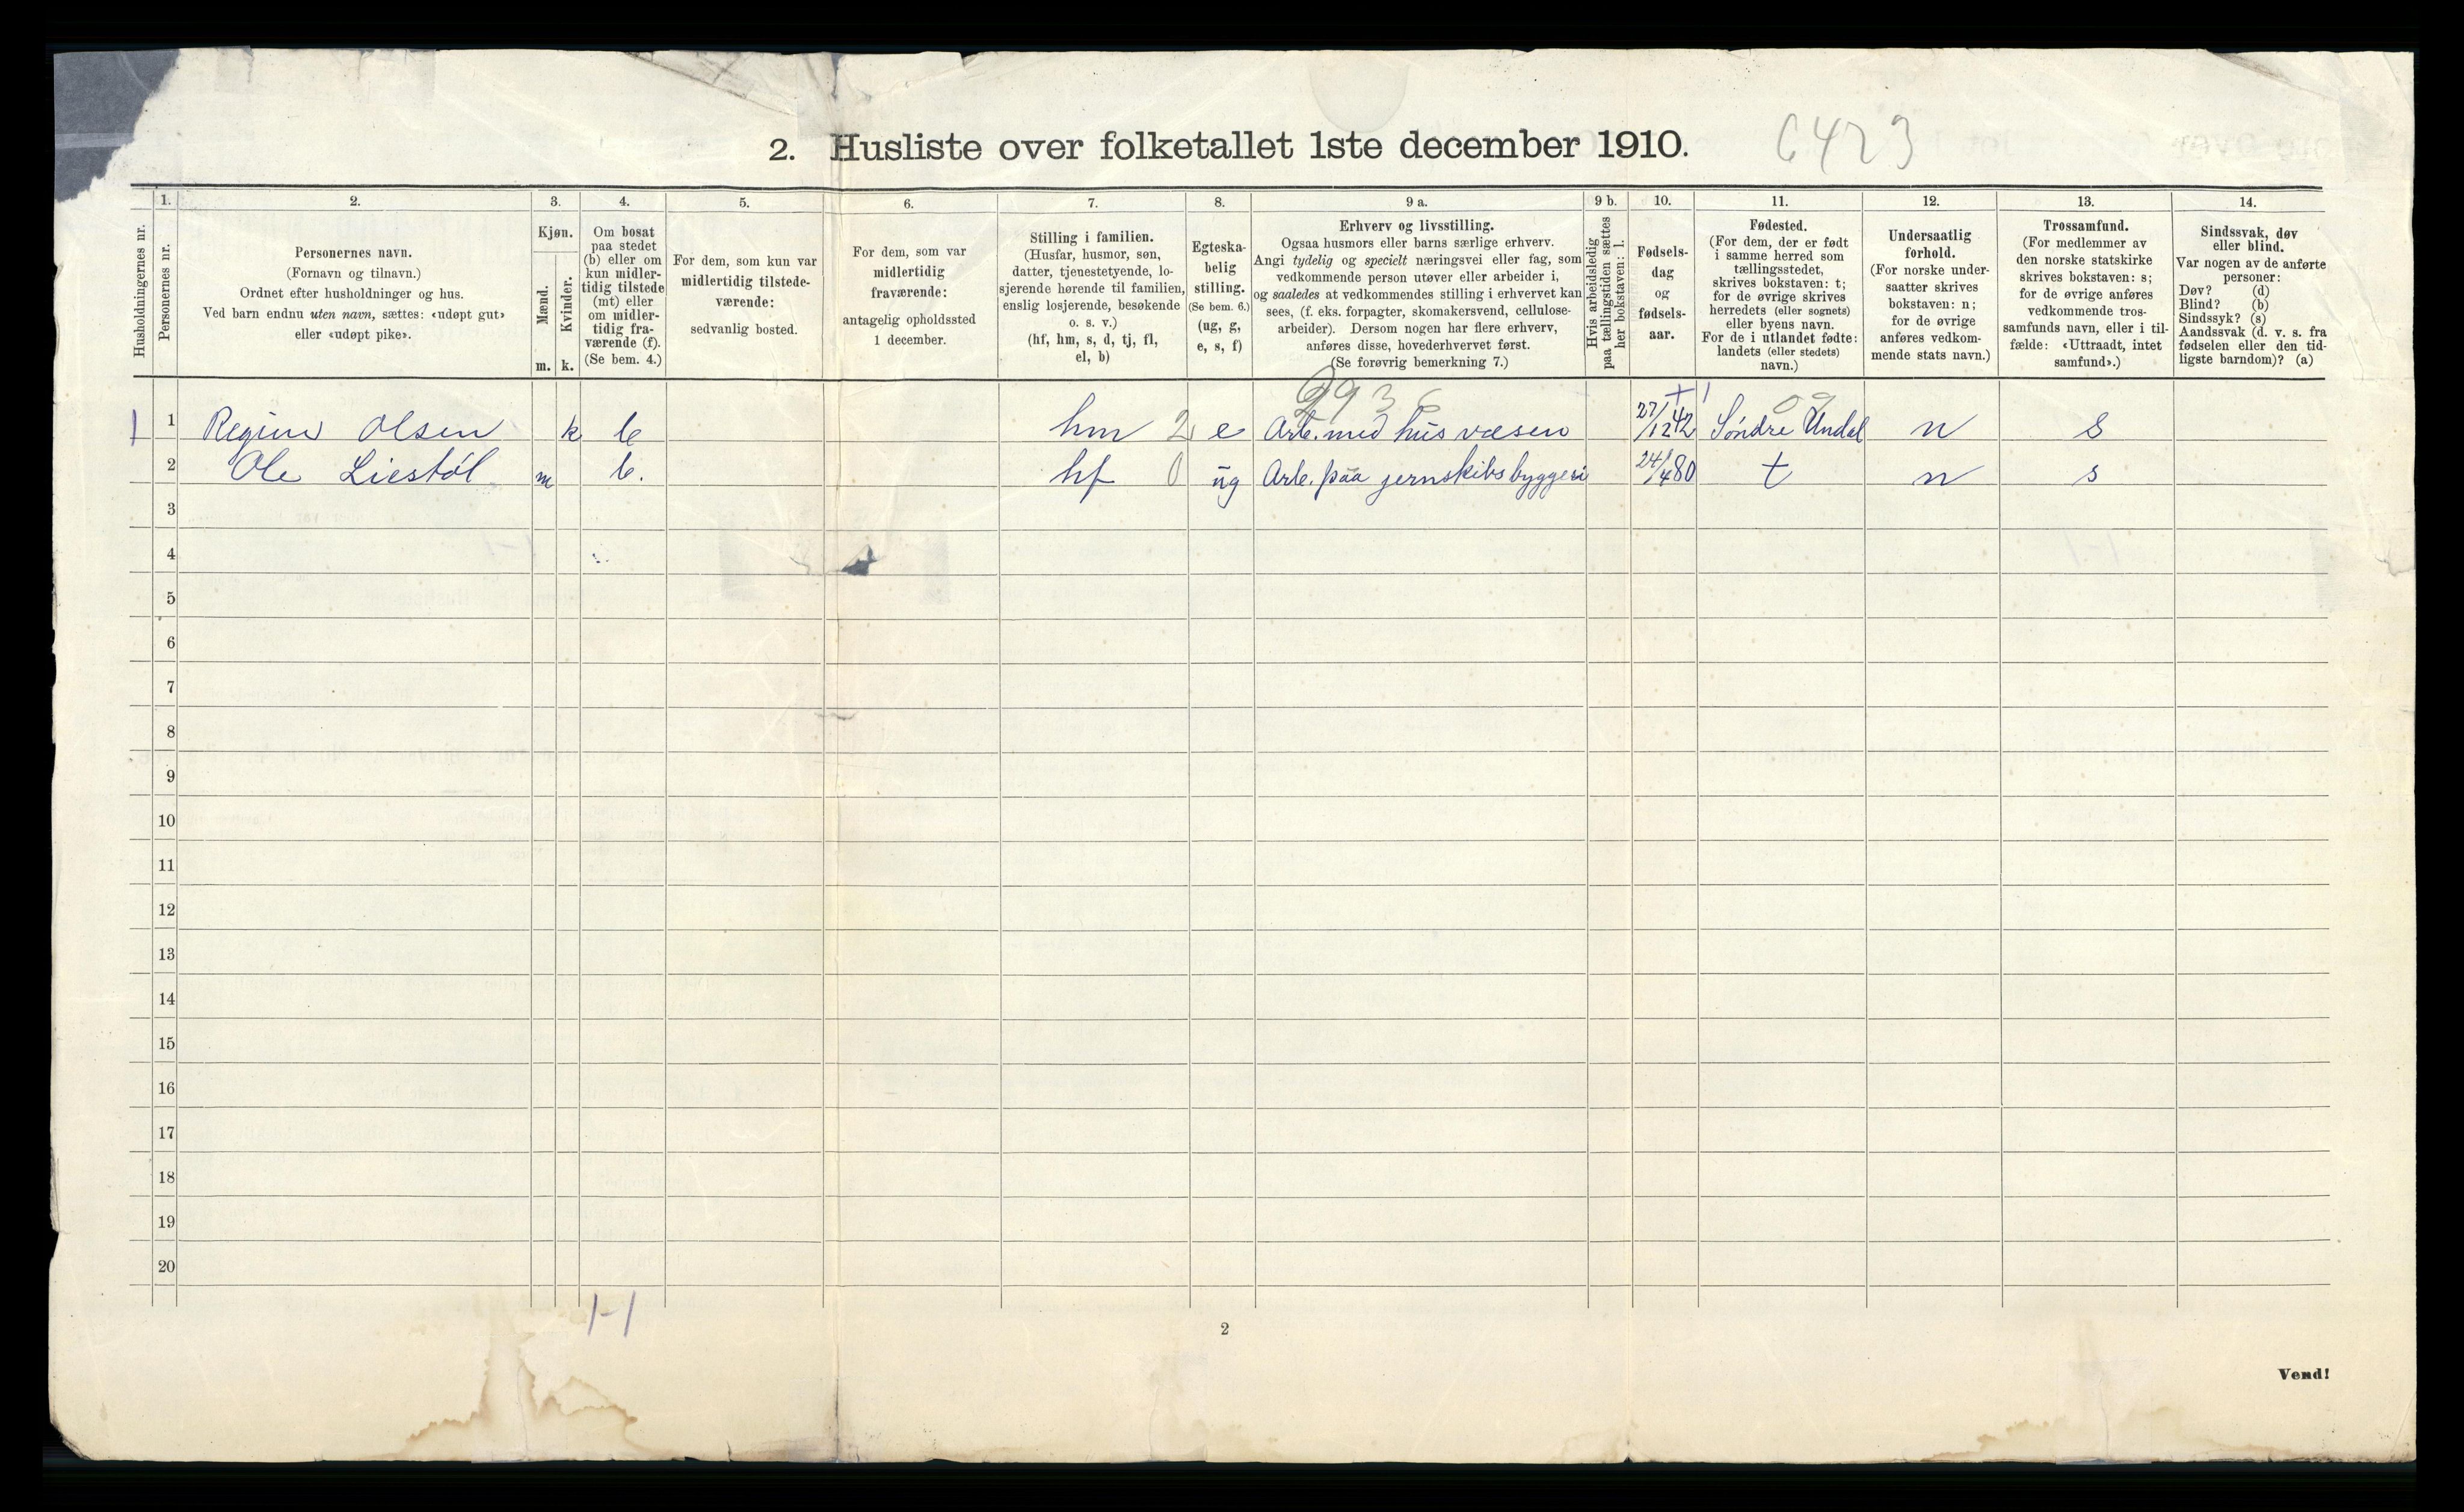 2. Husliste over folketallet 1ste december 1910. 6423
Husholdningernes nr.
1.
Personernes nr.
2.
Personernes navn.
(Fornavn og tilnavn.)
Ordnet efter husholdninger og hus.
Ved barn endnu uten navn, sættes: «udøpt gut»
eller «udøpt pike».
3.
Kjøn.
Mænd.
m.
Kvinder.
k.
4.
Om bosat
paa stedet
(b) eller om
kun midler-
tidig tilstede
(mt) eller
om midler-
tidig fra-
værende (f).
(Se bem. 4.)
5.
For dem, som kun var
midlertidig tilstede-
værende:
sedvanlig bosted.
6.
For dem, som var
midlertidig
fraværende:
antagelig opholdssted
1 december.
7.
Stilling i familien.
(Husfar, husmor, søn,
datter, tjenestetyende, lo-
sjerende hørende til familien,
enslig losjerende, besøkende
o. s. v.)
(hf, hm, s, d, tj, fl,
el, b)
8.
Egteska-
belig
stilling.
(Se bem. 6.)
(ug, g,
e, s, f)
9 a.
Erhverv og livsstilling.
Ogsaa husmors eller barns særlige erhverv.
Angi tydelig og specielt næringsvei eller fag, som
vedkommende person utøver eller arbeider i,
og saaledes at vedkommendes stilling i erhvervet kan
sees, (f. eks. forpagter, skomakersvend, cellulose-
arbeider). Dersom nogen har flere erhverv,
anføres disse, hovederhvervet først.
(Se forøvrig bemerkning 7.)
9 b.
Hvis arbeidsledig
paa tællingstiden sættes
her bokstaven: l.
10.
Fødsels-
dag
og
fødsels-
aar.
11.
Fødested.
(For dem, der er født
i samme herred som
tællingsstedet,
skrives bokstaven: t;
for de øvrige skrives
herredets (eller sognets)
eller byens navn.
For de i utlandet fødte:
landets (eller stedets)
navn.)
12.
Undersaatlig
forhold.
(For norske under-
saatter skrives
bokstaven: n;
for de øvrige
anføres vedkom-
mende stats navn.)
13.
Trossamfund.
(For medlemmer av
den norske statskirke
skrives bokstaven: s;
for de øvrige anføres
vedkommende tros-
samfunds navn, eller i til-
fælde: «Uttraadt, intet
samfund».)
14.
Sindssvak, døv
eller blind.
Var nogen av de anførte
personer:
Døv? (d)
Blind? (b)
Sindssyk? (s)
Aandssvak (d. v. s. fra
fødselen eller den tid-
ligste barndom)? (a)
1 1 Regine Olsen k b hm 2 e Arb. med husvæsen 27/12 42 Söndre Undal n s
2 Ole Liestöl m b. hf 0 ug Arb. paa jernskibsbyggeri 24/4 80 t n s
3
4
5
6
7
8
9
10
11
12
13
14
15
16
17
18
19
20
1-1
2
Vend!